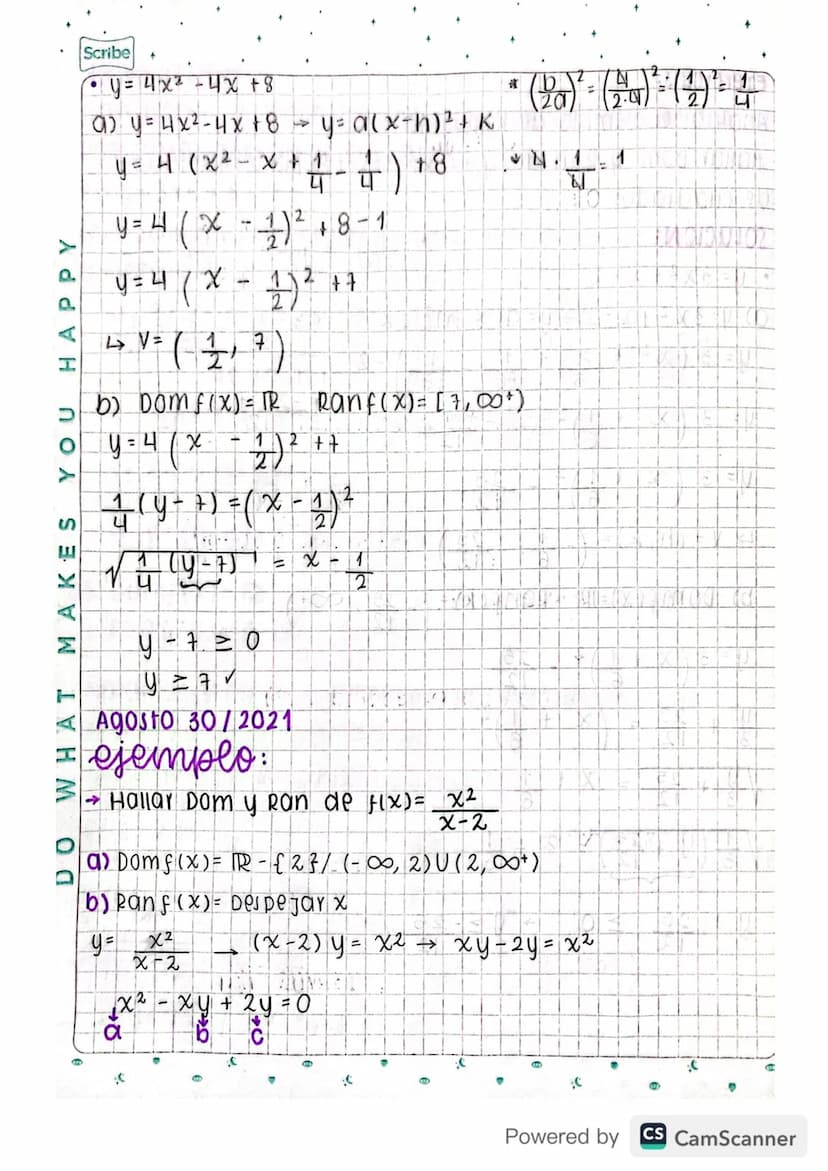 Scribe
• y= 4x² -4x +8
* (b/2a)² = (4/2·4)² = (1/2)² = 1/4
a) y= 4x²-4x+8 → y= a(x-h)² + K
y= 4 (x² - x + 1/4 - 1/4) +8
↓ 4 · 1/4 = 1
y= 4 (x - 1/2)² + 8 - 1
y= 4 (x - 1/2)² +7
↳ V= (1/2, 7)
b) Domf(x)= ℝ Ranf(x)= [7,∞⁺)
y= 4 (x - 1/2)² +7
1/4 (y- 7) = (x - 1/2)²
√(1/4 (y-7)) = x - 1/2
y - 7 ≥ 0
y ≥ 7 ✓
Agosto 30/2021
ejemplo:
→ Hallar Dom y Ran de f(x)= x²/x-2
a) Domf(x)= ℝ - {2}/ (-∞, 2)U(2, ∞⁺)
b) Ranf(x)= Despejar x
y= x²/x-2 → (x-2) y = x² → xy-2y= x²
x² - xy + 2y = 0
a b c
DO WHAT MAKES YOU HAPPY
Powered by CS CamScanner